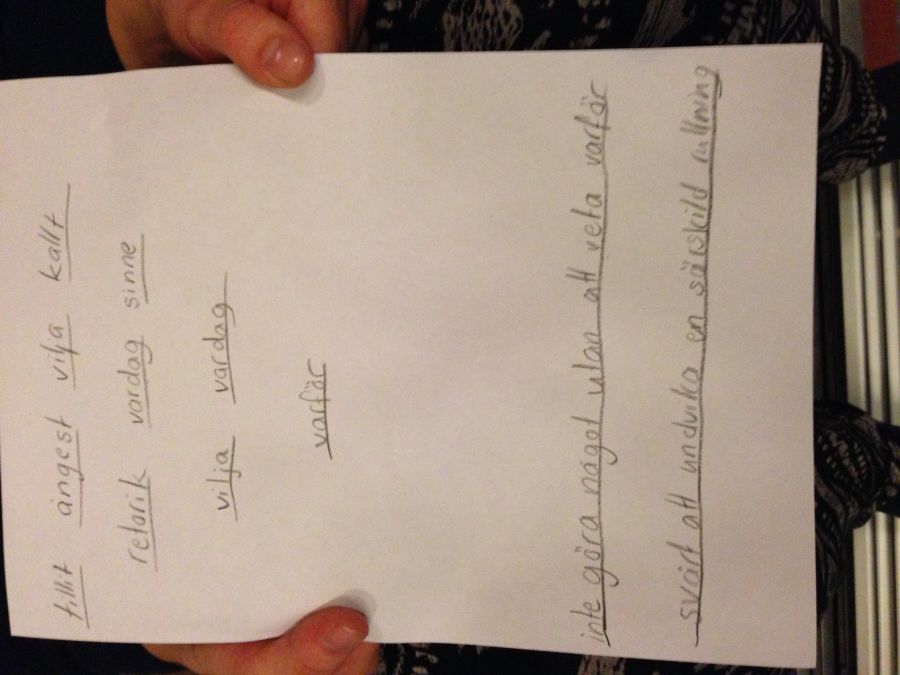 tillit ångest vilja kallt
retorik vardag sinne
vilja vardag
varför
inte göra något utan att veta varför
svårt att undvika en särskild rullning